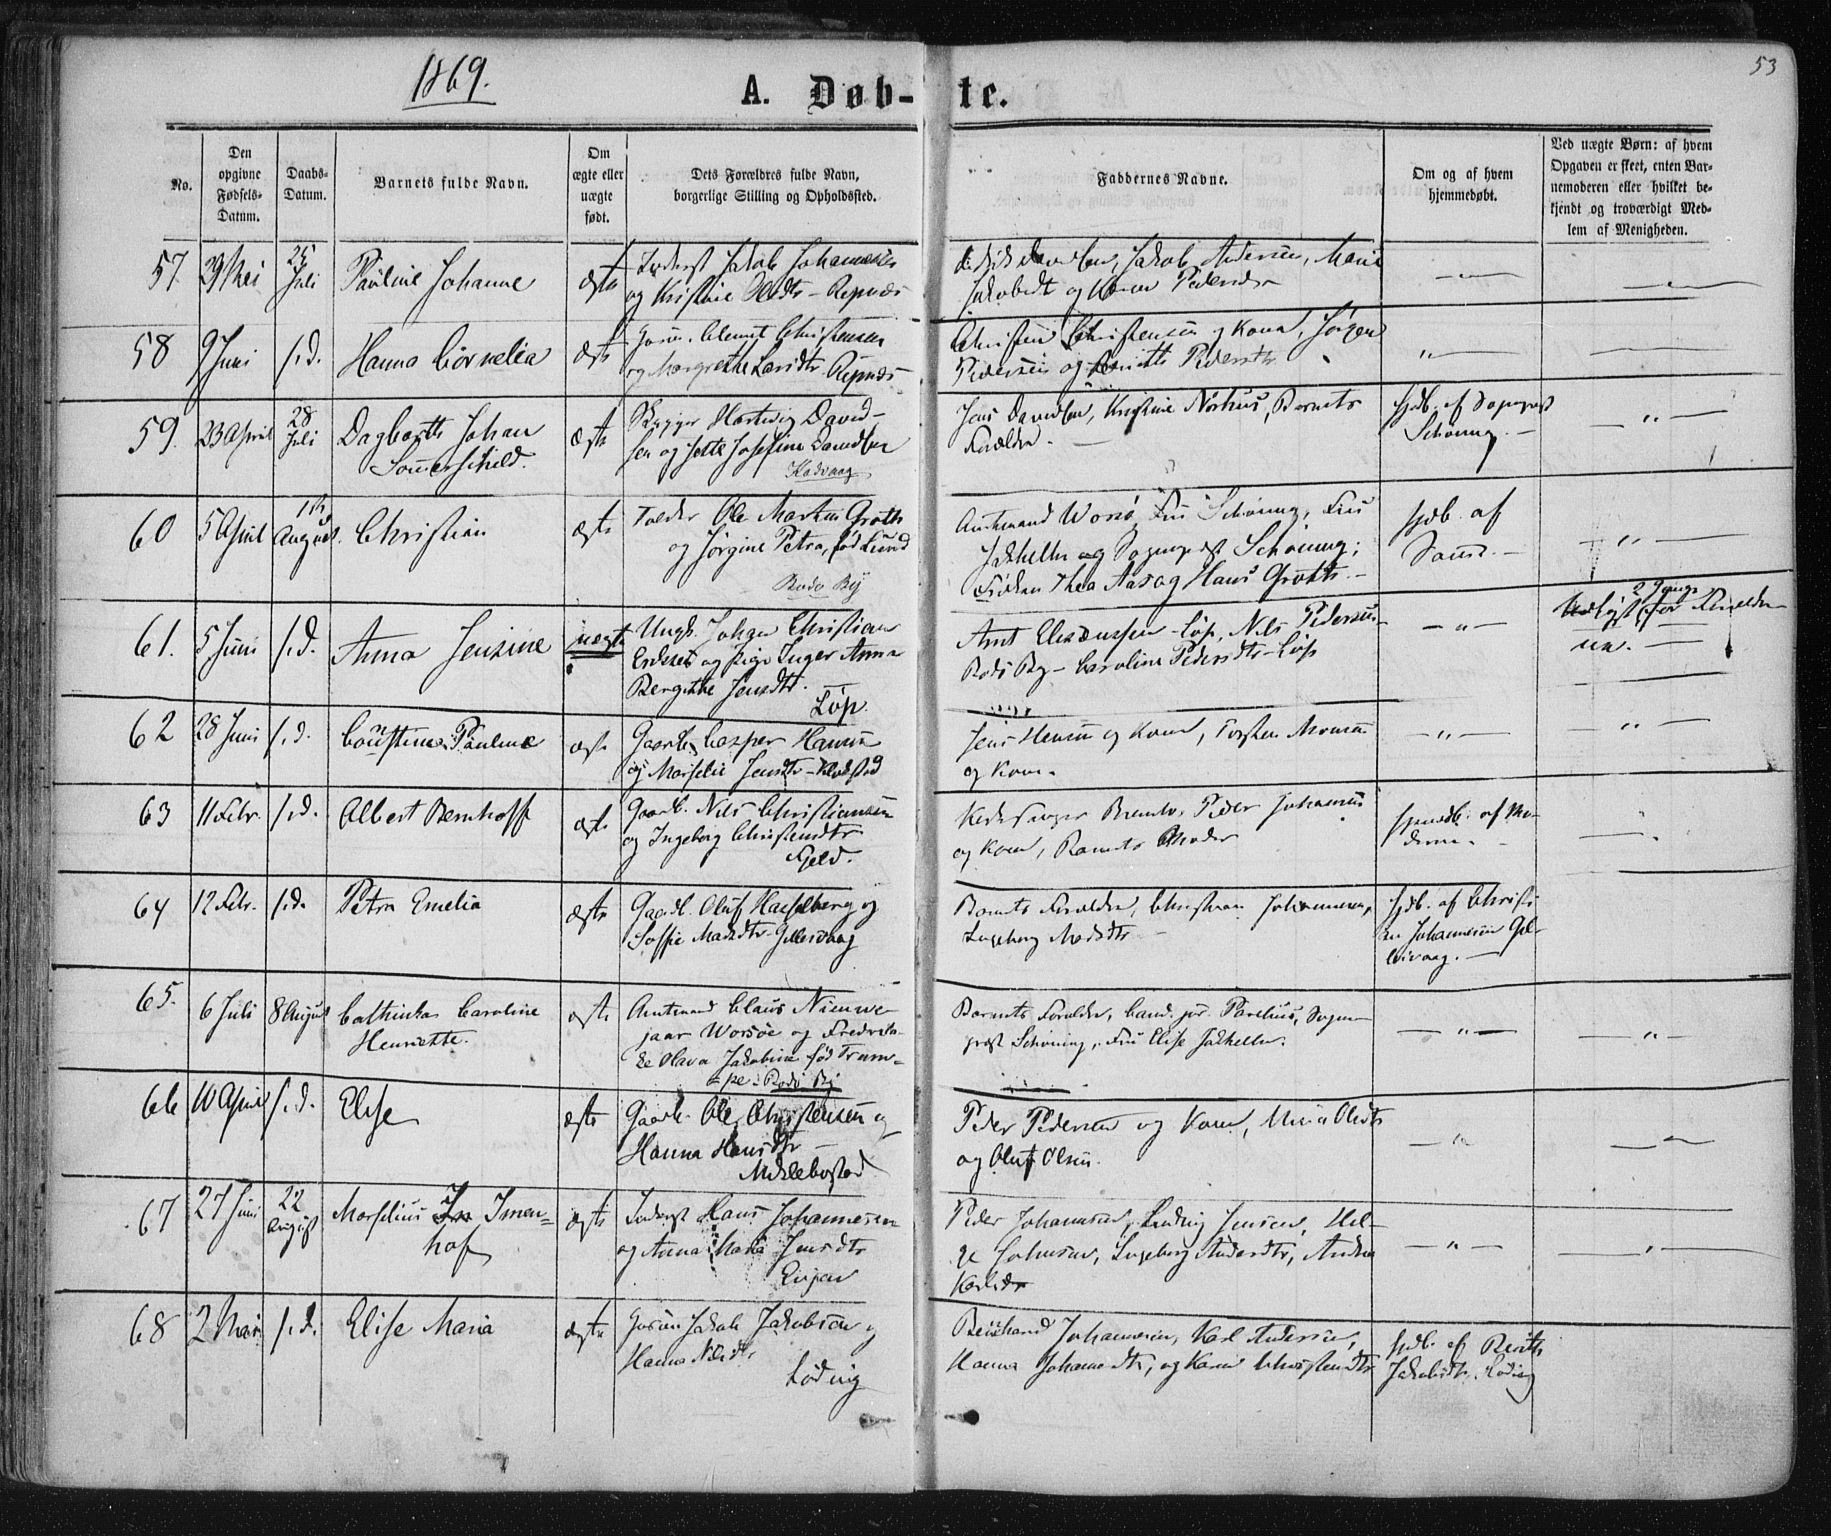 1869.
A. Døb-te.
53
No.
Den opgivne Fødsels-Datum.
Daabs-Datum.
Barnets fulde Navn.
Om ægte eller uægte født.
Dets Forældres fulde Navn, borgerlige Stilling og Opholdssted.
Faddernes Navne.
Om og af hvem hjemmedøbt.
Ved uægte Børn: af hvem Opgaven er skeet, enten Barnemoderen eller hvilket bekjendt og troværdigt Medlem af Menigheden.
57. 29 Mei 25 Juli Pauline Johanne ægte Jakob Johannesen
og Kristine Olsdtr - Repnæs
Jakob Andersen, Marie
Jakobsdt og Pedersdtr
58 9 Juni s. d. Hanna Cornelia ægte Clemet Christensen
og Margrethe Larsdtr Repnæs
Christen Christensen og Kone, Jørgen
Pedersen og Pedersdtr
59. 23 April 28 Juli Dagbarth Johan ægte Hartvig David-
Sommerschield. sen og Jette Josefine Davidsen
Kadvaag
Jens Davidsen, Kristine Norhus, Barnets
Forældre. -
hjdb. af Sogneprest
Schöning. -
60 5 April 1ste August. Christian ægte Tolder Ole Martin Groth
og Jørgine Petra, fød Lund
Bodø By
Amtmand Worsö, Fru Schöning, Frü
Jakhelln og Sognepr Schöning;
Frøken Thea Aas og Hans Groth. -
hjdb. af
61. 5 Juni s. d. Anna Jensine uægte Ungk. Johan Christian
og Pige Inger Anna
Bergitte Jensdtr.
Løp.
Arnt Eliasen Løp, Nils Pedersen
Bodø By - Caroline Pedersdtr Løp
2 Gange
for Forældre-
ne. -
62 28 Juni s. d. Pauline ægte Gaardb. Casper Hansen
og Marselie Jensdtr - Kløkstad
Jens Hansen og Kone, Torsten
og Kone.
63 11 Febr. s. d. Albert Bernhoff ægte Gaardb. Nils Christiansen
og Ingeborg Christensdtr
Fjeld.
Kirkesanger Peder Johansen
og Kone, Barnets Moder
hjemdb. af Mo-
deren.
64 12 Febr. s. d. Petra Emelia ægte Gaardb. Oluf Hasselberg og
Soffie Madsdtr Gillesvaag
Barnets Forældre, Christian Johannesen,
Ingeborg Madsdtr
hjdb. af Christi-
an Johannesen Gil-
lesvaag. -
65. 6 Juli 8 August Cathinka Caroline ægte Amtmand Claus Nieuwe-
Henriette. jaar Worsöe og Frederik-
ke Olava Jakobine fød Tram-
pe - Bodø By
Barnets Forældre, Cand. jur. Parelius, Sogne-
prest Schöning, Frü Elise Jakhelln.
66 10 April s. d. Elise ægte Gaardb. Ole Christensen og
Hanna Hansdtr
Miklebostad
Peder Pedersen og Kone, Maria Olsdtr
og Oluf Olsen.
67 27 Juni 22 August Marselius Imen- ægte Inderst Hans Johannesen
hof og Anna Maria Jensdtr
Peder Johansen, Ludvig Jensen, Hel-
ge Johnsen, Ingeborg Andersdtr, Andrea
Karlsdtr
68 2 Mai s. d. Elise Maria ægte Jakob Jakobsen og
Hanna Nilsdtr
Løding
Bernhard Johannesen, Karl Andersen,
Hanna Johansdtr, og Karen Christensdtr
hjdb. af Berith
Jakobsdtr. Løding